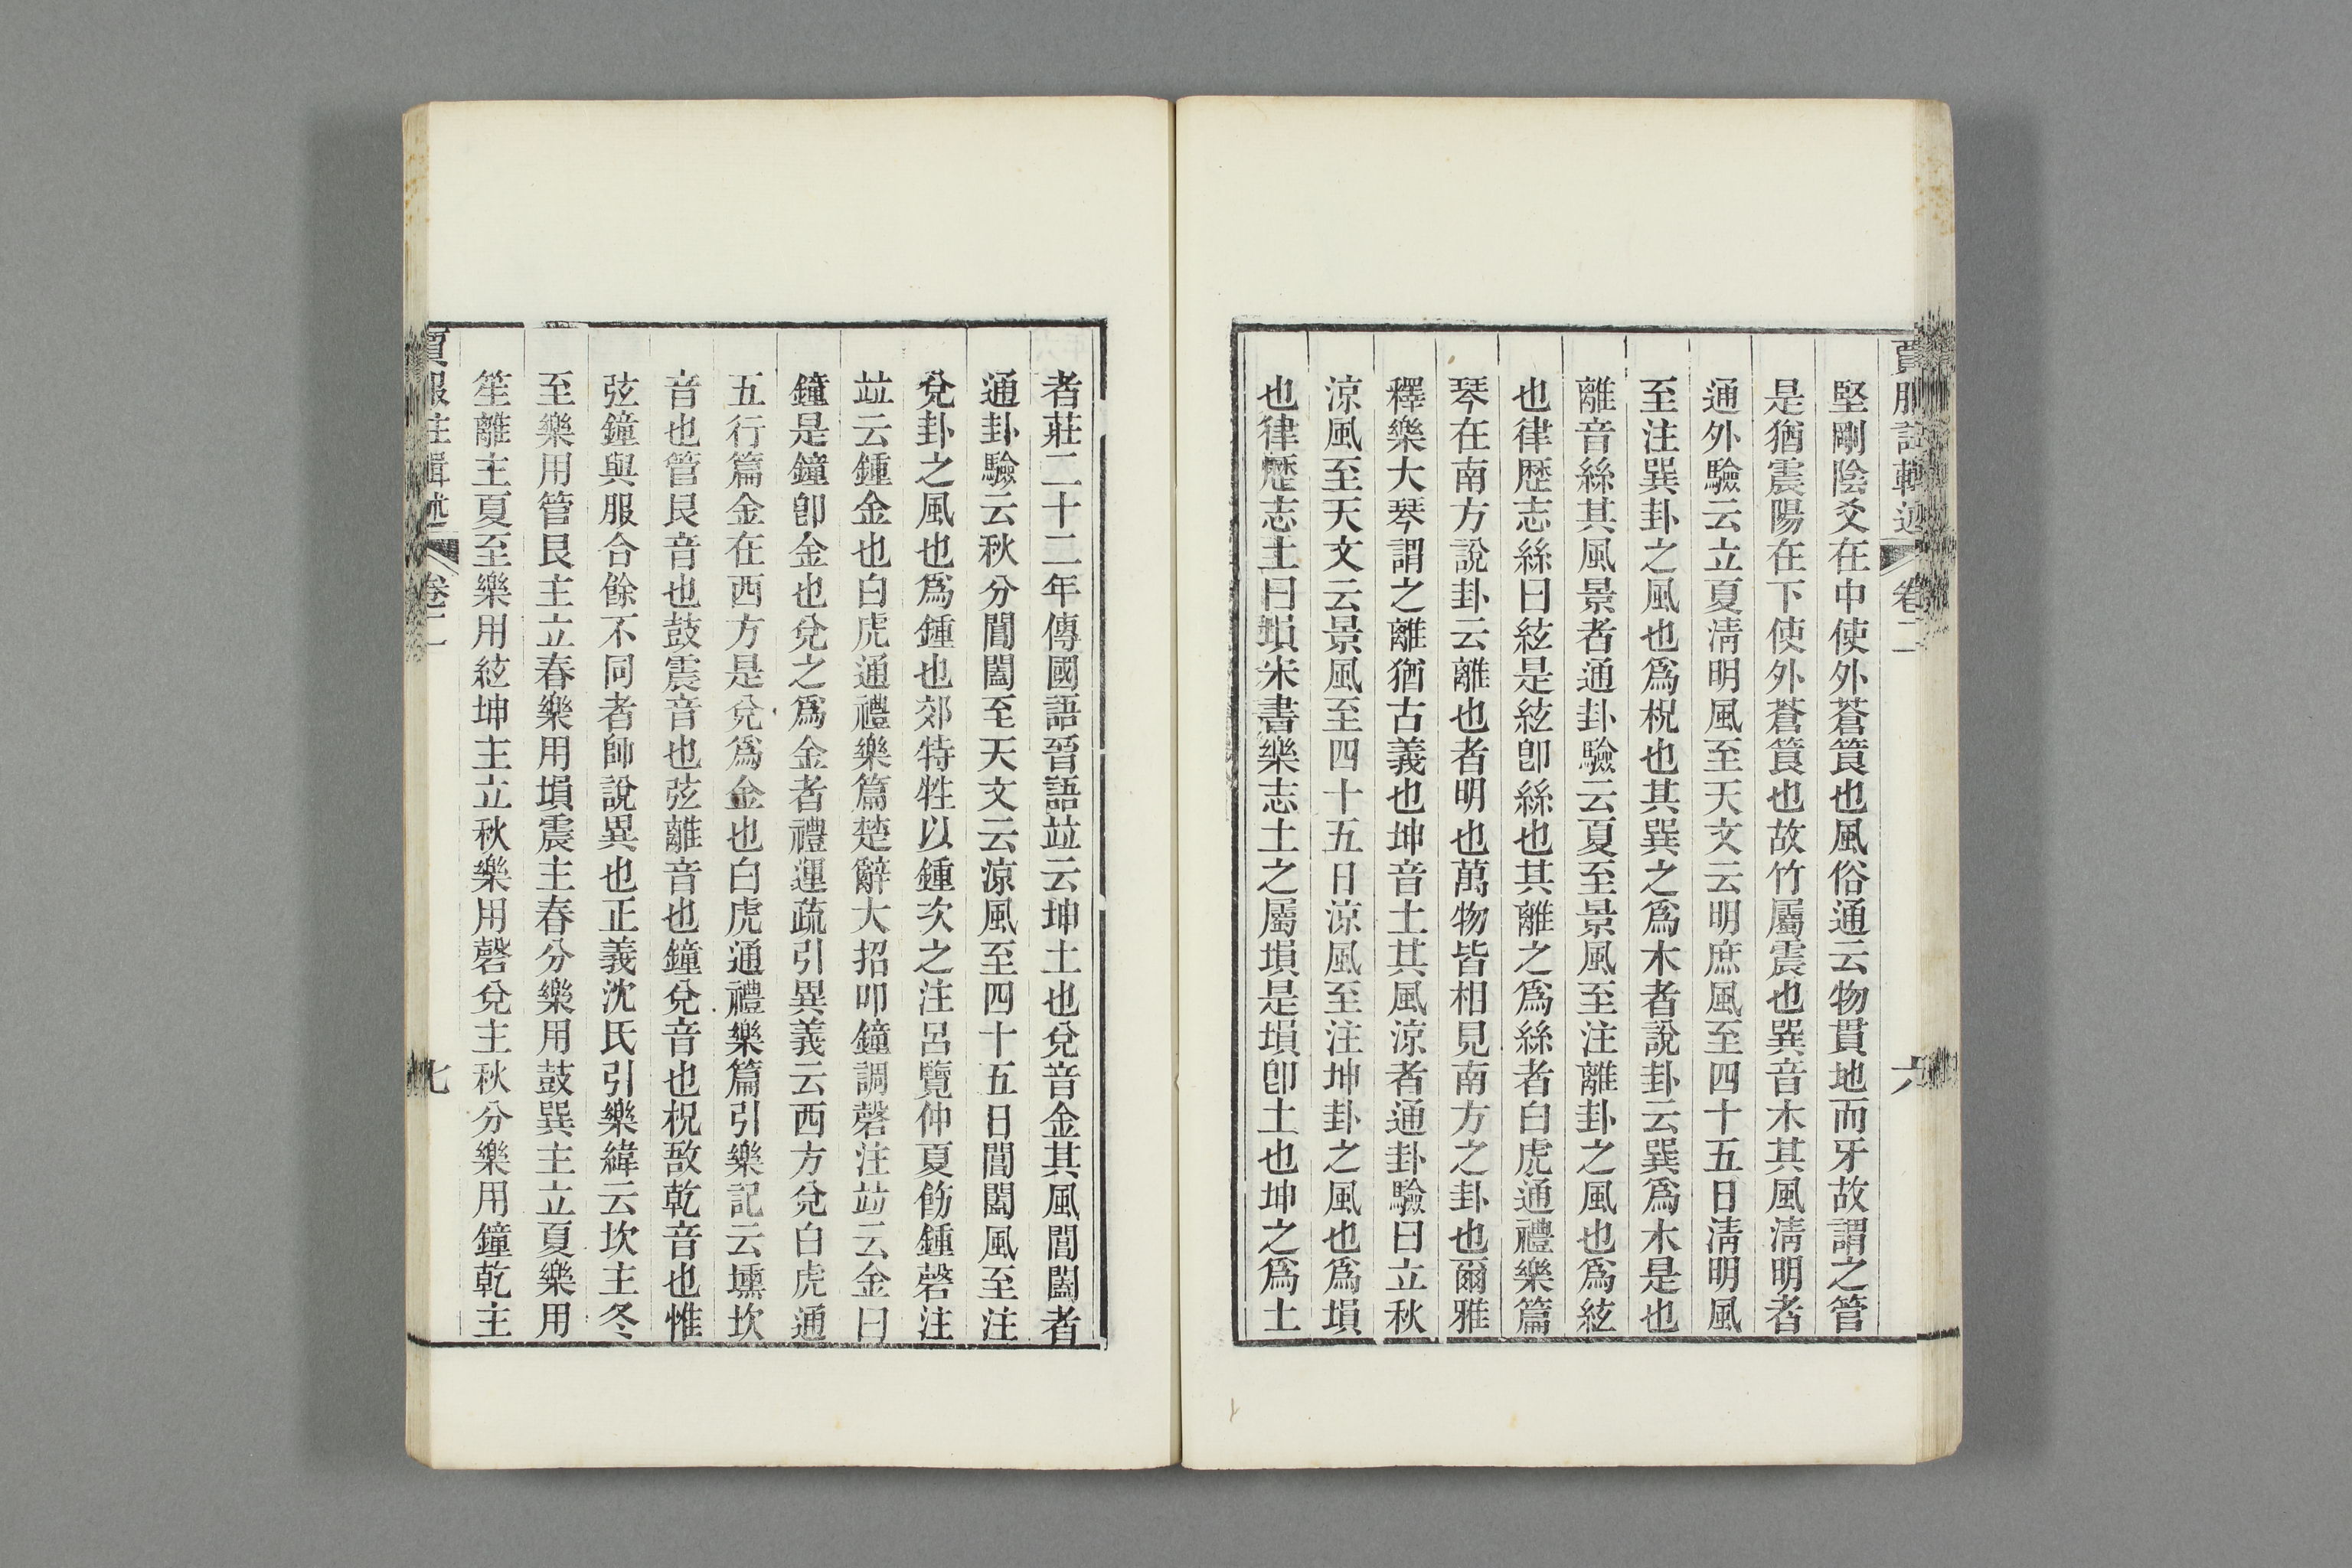 賈服註輯述 卷二 六
堅剛陰爻在中使外蒼筤也風俗通云物貫地而牙故謂之管
是猶震陽在下使外蒼筤也故竹屬震也巽音木其風淸明者
通外驗云立夏淸明風至天文云明庶風至四十五日淸明風
至注巽卦之風也爲柷也其巽之爲木者說卦云巽爲木是也
離音絲其風景者通卦驗云夏至景風至注離卦之風也爲絃
也律歷志絲曰絃是絃卽絲也其離之爲絲者白虎通禮樂篇
琴在南方說卦云離也者明也萬物皆相見南方之卦也爾雅
釋樂大琴謂之離猶古義也坤音土其風涼者通卦驗曰立秋
涼風至天文云景風至四十五日涼風至注坤卦之風也爲塤
也律歷志土曰塤宋書樂志土之屬塤是塤卽土也坤之爲土
者莊二十二年傳國語晉語竝云坤土也兌音金其風閶闔者
通卦驗云秋分閶闔至天文云涼風至四十五日閶闔風至注
兌卦之風也爲鍾也郊特牲以鍾次之注呂覽仲夏飭鍾磬注
竝云鍾金也白虎通禮樂篇楚辭大招叩鐘調磬注竝云金曰
鐘是鐘卽金也兌之爲金者禮運疏引異義云西方兌白虎通
五行篇金在西方是兌爲金也白虎通禮樂篇引樂記云壎坎
音也管艮音也鼓震音也弦離音也鐘兌音也柷敔乾音也惟
弦鐘與服合餘不同者師說異也正義沈氏引樂緯云坎主冬
至樂用管艮主立春樂用塤震主春分樂用鼓巽主立夏樂用
笙離主夏至樂用絃坤主立秋樂用磬兌主秋分樂用鐘乾主
賈服注輯述 卷二 七